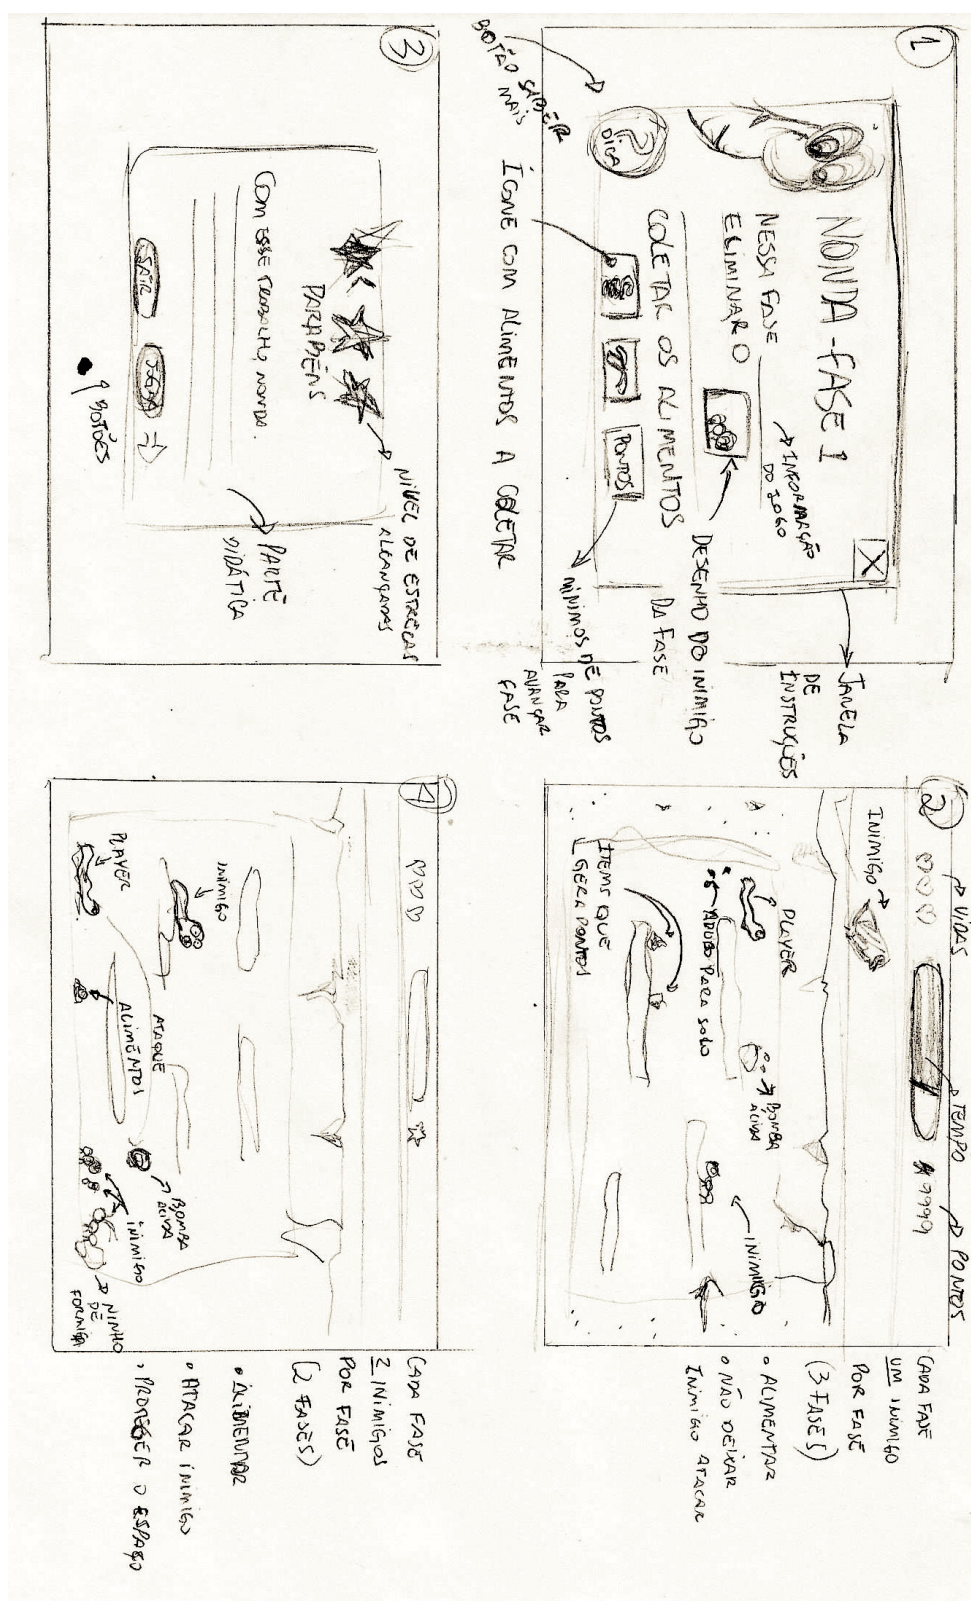 1
NONDA - FASE 1
X
NESSA FASE
ELIMINAR O
COLETAR OS ALIMENTOS
PONTOS
? DICA
BOTÃO SABER
MAIS
ÍCONE COM ALIMENTOS A COLETAR
→ INFORMAÇÃO
DO JOGO
DESENHO DO INIMIGO
DA FASE
MÍNIMOS DE PONTOS
PARA
AVANÇAR
FASE
JANELA
DE
INSTRUÇÕES
2
VIDAS
TEMPO
PONTOS
9999
INIMIGO
PLAYER
BOMBA
ADUBO PARA SOLO
ITEMS QUE
GERA PONTOS
INIMIGO
CADA FASE
UM INIMIGO
POR FASE
(3 FASES)
• ALIMENTAR
• NÃO DEIXAR
INIMIGO ATACAR
3
PARABÉNS
COM ESSE TRABALHO, NONDA.
SAIR
BOTÕES
NÍVEL DE ESTRELAS
ALCANÇADAS
PARTE
DIDÁTICA
4
INIMIGO
PLAYER
ATAQUE
ALIMENTOS
BOMBA
INIMIGO
NINHO
DE
FORMIGA
CADA FASE
2 INIMIGOS
POR FASE
(2 FASES)
• ALIMENTAR
• ATACAR INIMIGO
• PROTEGER O ESPAÇO